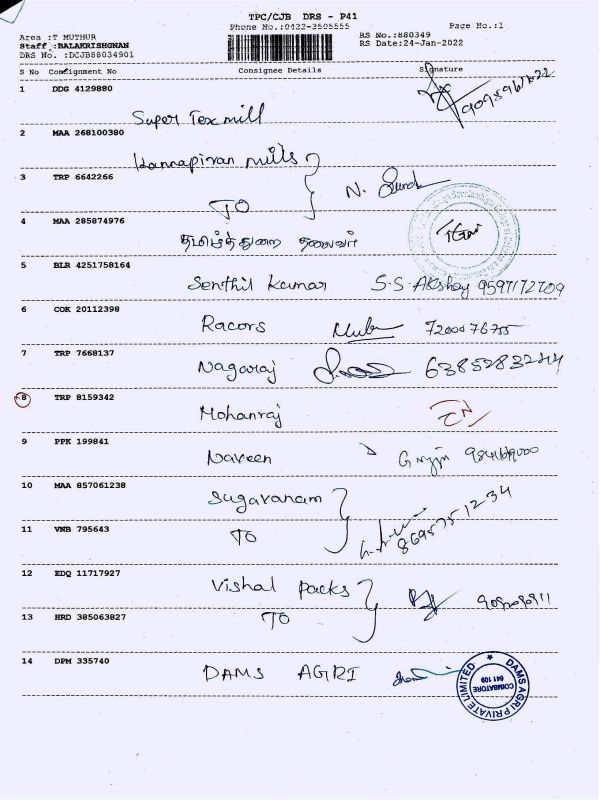 TPC/CJB DRS - P41
Phone No.:0422-3505555
Page No.:1
Area :T MUTHUR
RS No.:880349
Staff :BALAKRISHGNAN
RS Date:24-Jan-2022
DRS No. :DCJB88034901
S No Consignment No Consignee Details Signature
1 DDG 4129880
Super Tex mill
2 MAA 268100380
Kannapiran mills
3 TRP 6642266
TO N.
4 MAA 285874976
தமிழ்த்துறை தலைவர்
5 BLR 4251758164
Senthil Kumar S.S Akshay 9597172709
6 COK 20112398
Racors 7200076755
7 TRP 7668137
Nagaraj
8 TRP 8159342
Mohanraj
9 PPK 199841
Naveen
10 MAA 857061238
Sugavanam
11 VNB 795643
TO 8695751234
12 EDQ 11717927
Vishal packs
13 HRD 385063827
TO
14 DPM 335740
DAMS AGRI
DAMS AGRI PRIVATE LIMITED
COIMBATORE
641 109